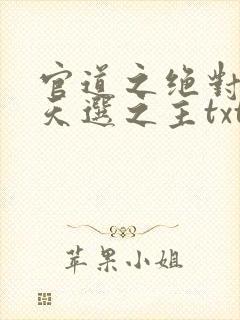 官道之绝對
天選之主txt
苹果小姐